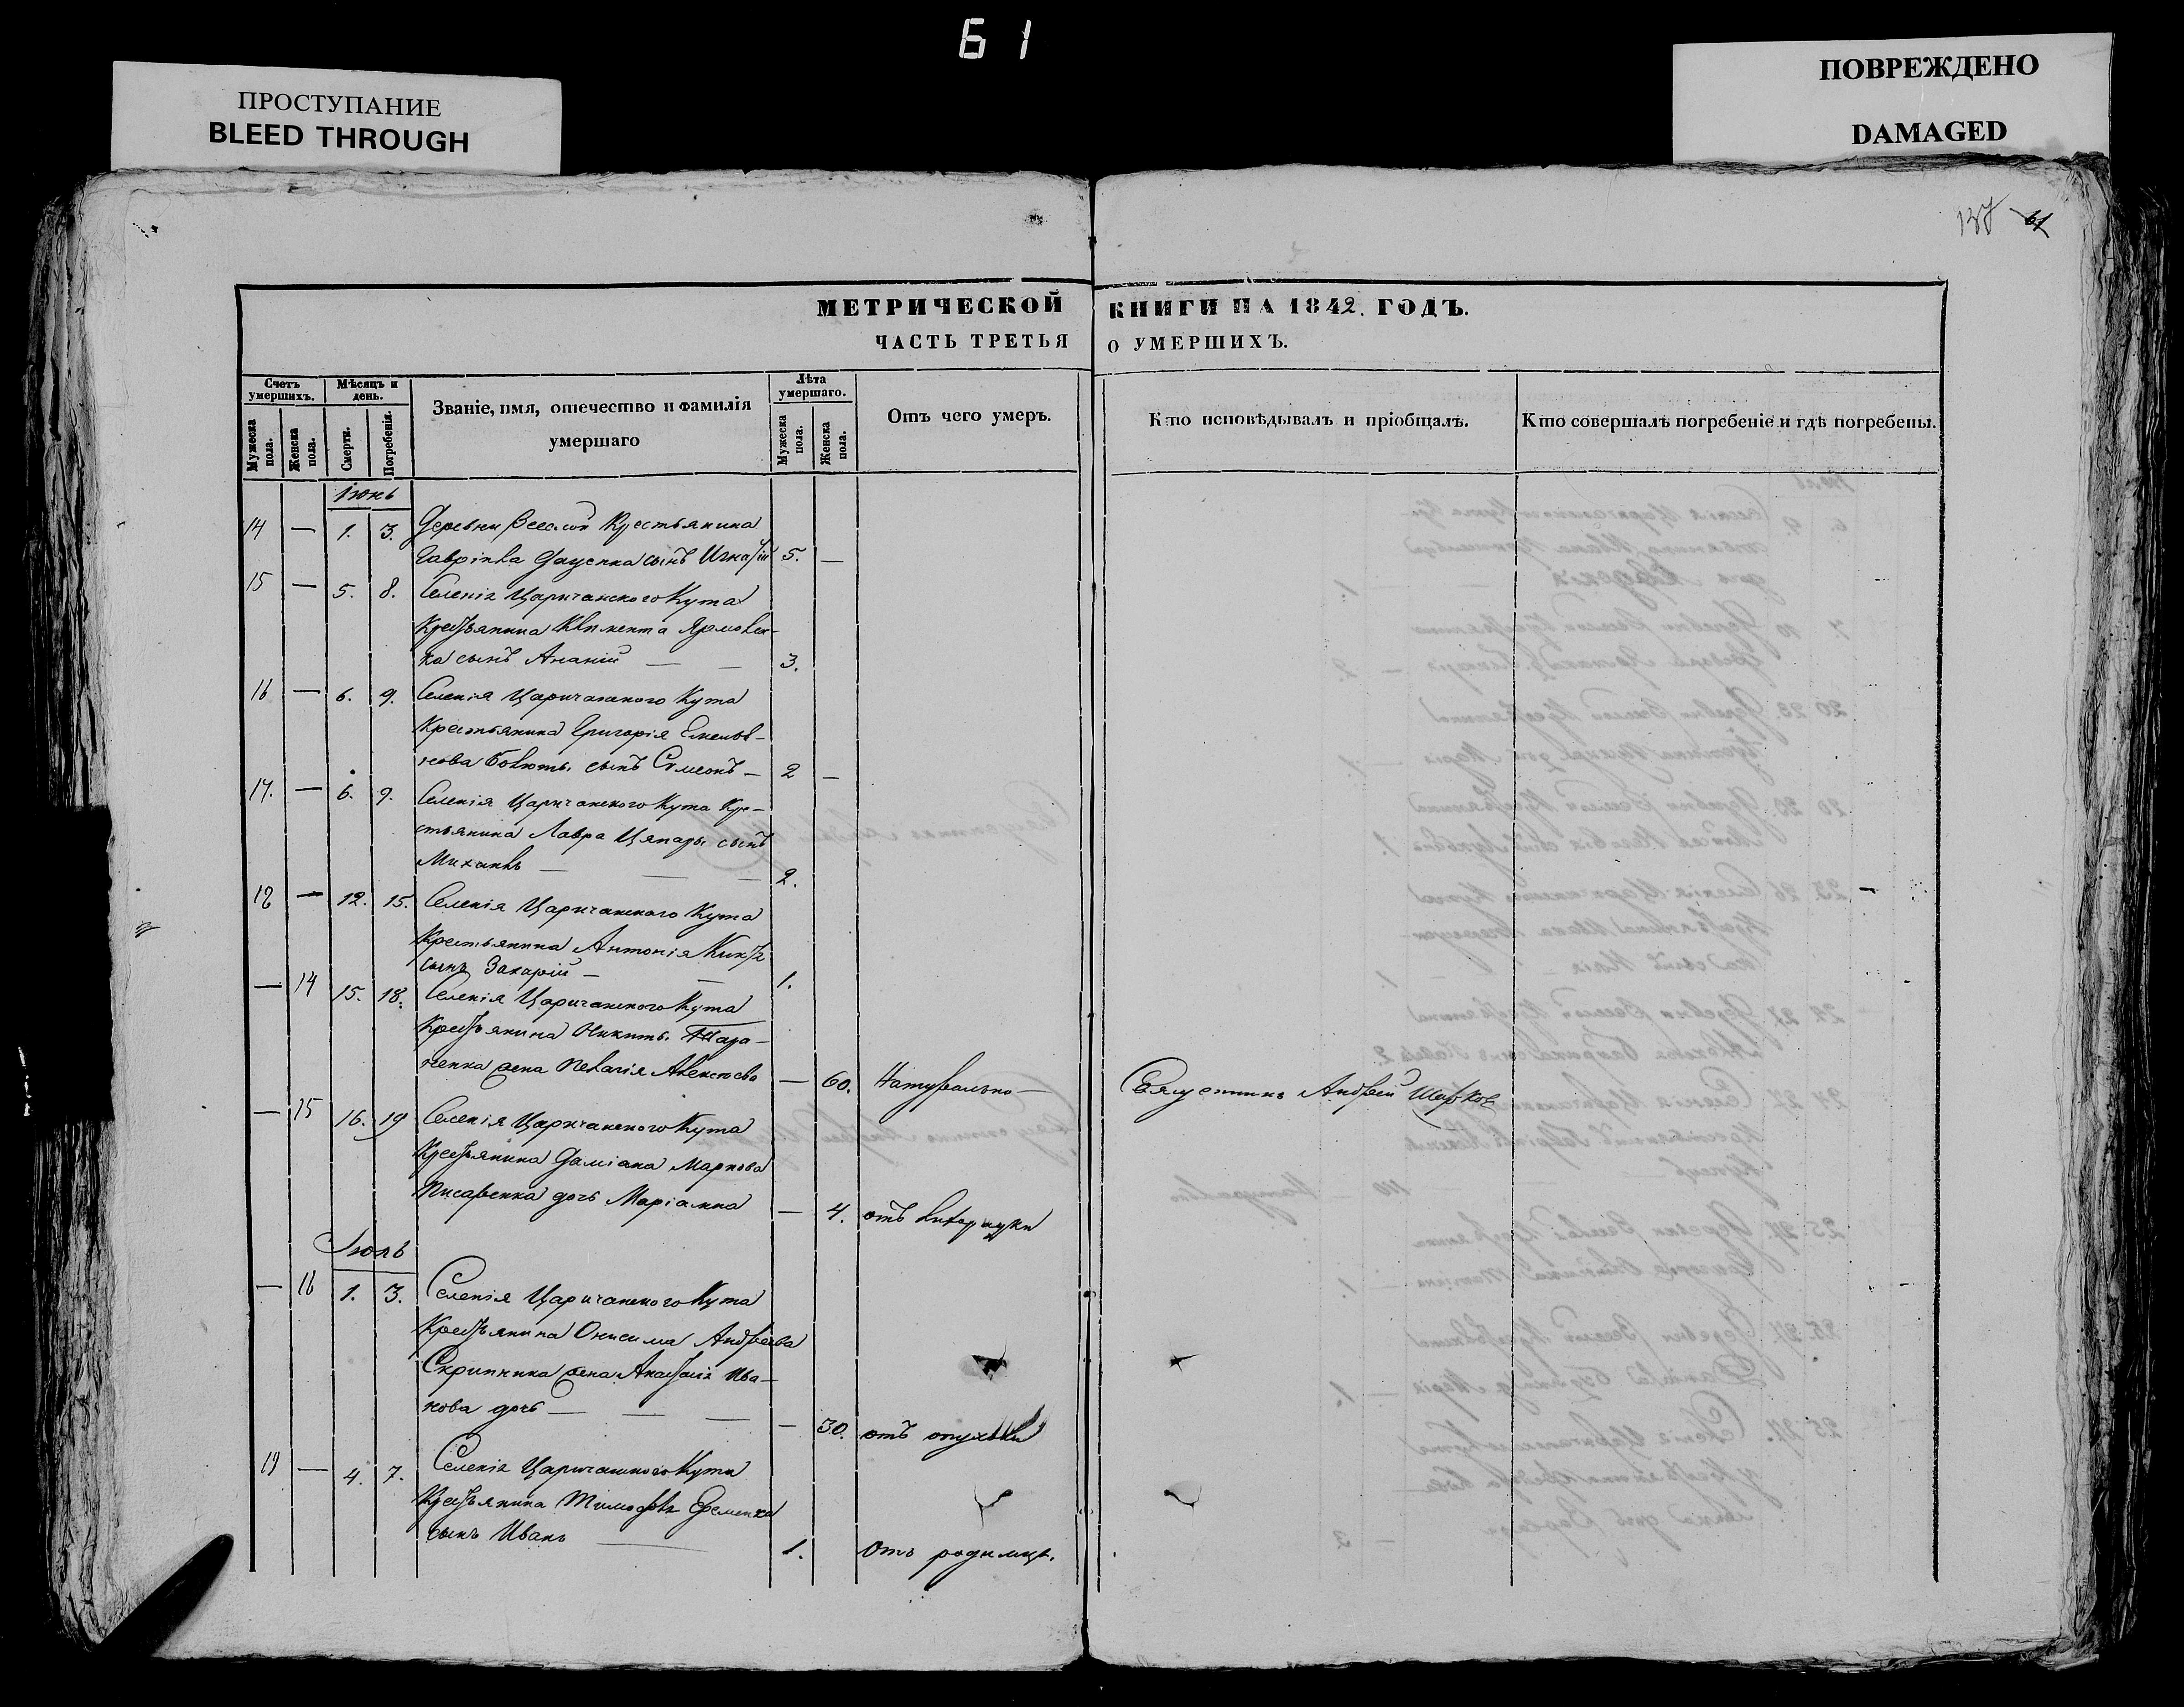 61
ПРОСТУПАНИЕ
BLEED THROUGH
ПОВРЕЖДЕНО
DAMAGED
137 61
МЕТРИЧЕСКОЙ КНИГИ НА 1842. ГОДЪ.
ЧАСТЬ ТРЕТЬЯ О УМЕРШИХЪ.
Счетъ умершихъ.
Мужеска пола.
Женска пола.
Мѣсяцъ и день.
Смерти.
Погребенія.
Званіе, имя, отечество и фамилія умершаго
Лѣта умершаго.
Мужеска пола.
Женска пола.
Отъ чего умеръ.
Кто исповѣдывалъ и пріобщалъ.
Кто совершалъ погребеніе и гдѣ погребены.
Іюнь
14 — 1. 3. Деревни Веселой Крестьянина
Гавріила Даценка сынъ Игнатій 5. —
15 — 5. 8. Селенія Царичанского Кута
Крестьянина Климента Ярмолен-
ка сынъ Ананій — — 3.
16 — 6. 9. Селенія Царичанского Кута
Крестьянина Григорія Емелья-
нова сынъ Симеонъ — 2 —
17. — 6. 9. Селенія Царичанского Кута Кре-
стьянина Лавра Цяпары сынъ
Михаилъ — — — 2.
18 — 12. 15. Селенія Царичанского Кута
Крестьянина Антонія
сынъ Захарій — — 1.
— 14 15. 18. Селенія Царичанского Кута
Крестьянина Никиты Тара-
ненка жена Пелагія — 60. Натурально — Священникъ Андрей
— 15 16. 19 Селенія Царичанского Кута
Крестьянина Даміана Маркова
Писаренка дочь Маріамна — 4. отъ
Іюль
— 16 1. 3. Селенія Царичанского Кута
Крестьянина Онисима Андреева
Скрипника жена Анастасія Ива-
нова дочь — — — — 30. отъ опухоли
19 — 4. 7. Селенія Царичанского Кута
Крестьянина Тимофея Еременка
сынъ Иванъ — 1. Отъ родимца.